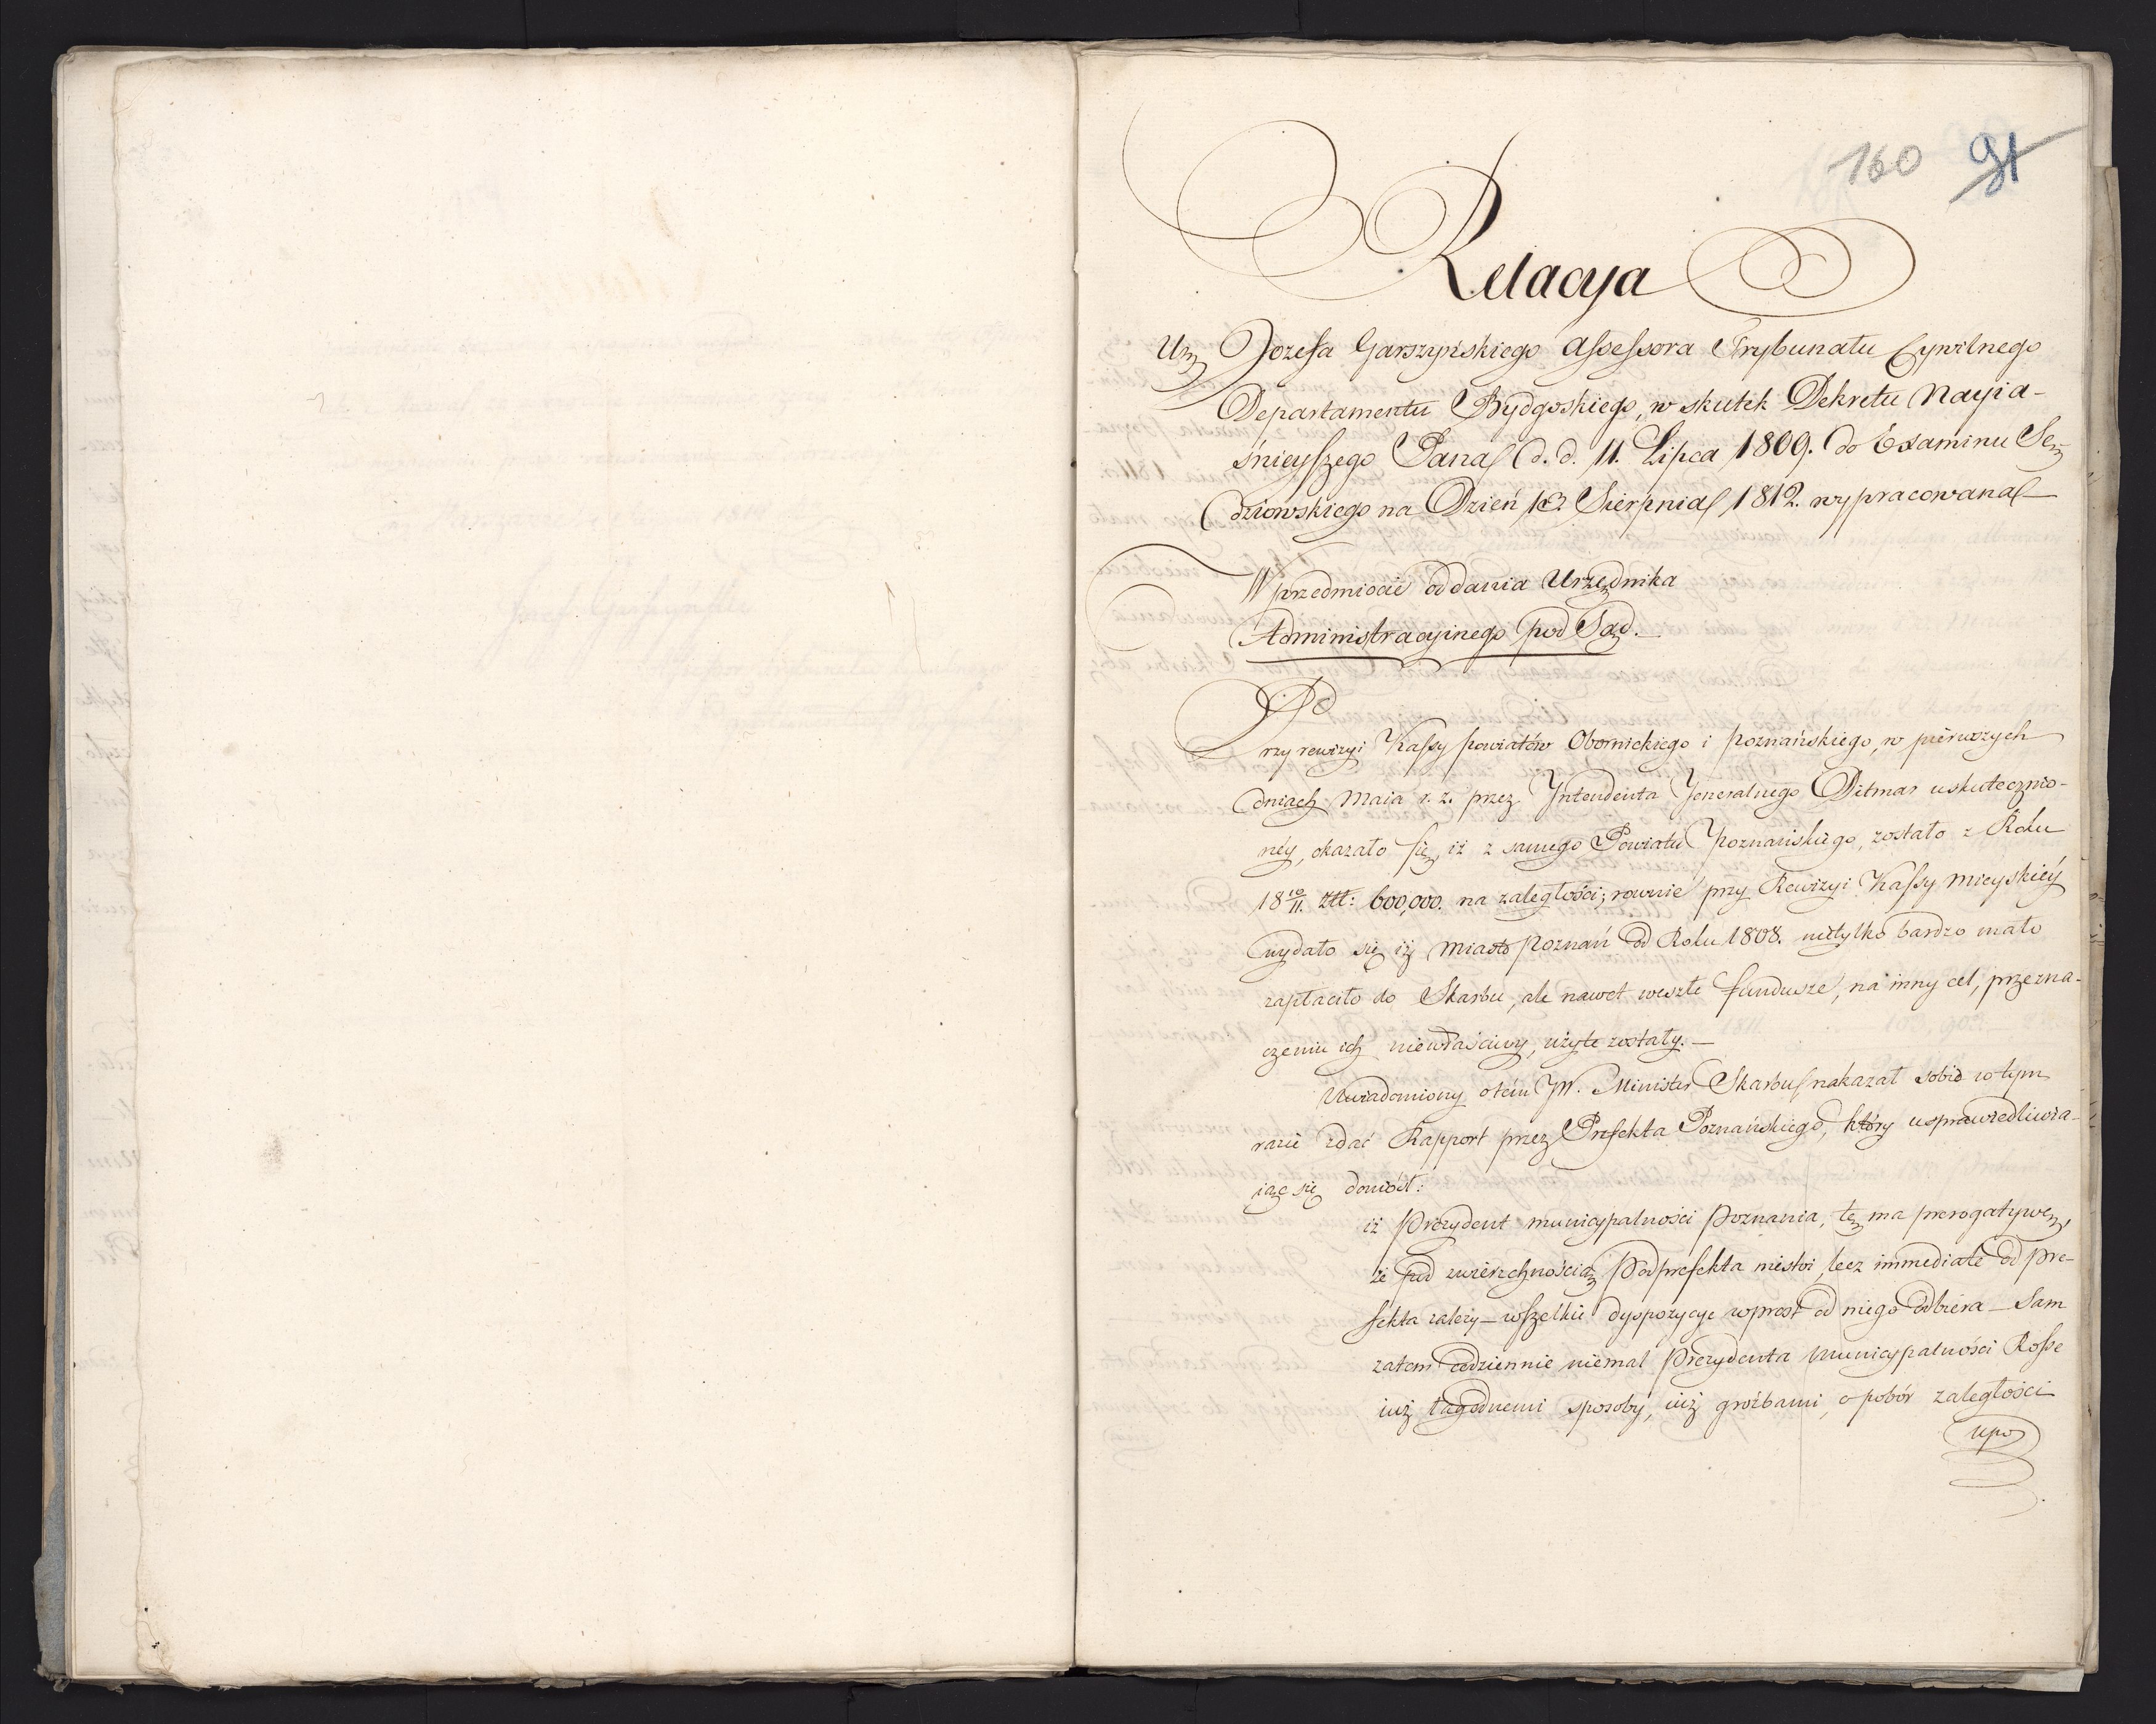 160 91
Relacyja
Józefa Garszyńskiego Assessora Trybunału Cywilnego
Departamentu Bydgoskiego, w skutek Dekretu Nayia-
śnieyszego Pana d. d. 11. Lipca 1809. do Examinu Sę-
dziowskiego na Dzień Sierpnia 1812. wypracowana
W przedmiocie oddania Urzędnika
Administracyinego pod Sąd.
Przy rewizyi Kassy powiatów Obornickiego i poznańskiego, w pierwszych
dniach Maia r. z. przez Intendenta Jeneralnego Ditmar uskutecznio-
néy, okazało się, iż z samego Powiatu poznańskiego, zostało z Roku
18 10/11. złł: 600,000. na zaległości; rownie przy Rewizyi Kassy mieyskiéy
wydało się iż Miasto poznań od Roku 1808. nietylko bardzo mało
zapłaciło do Skarbu, ale nawet weszłe fundusze, na inny cel, przezna-
czeniu ich niewłaściwy, użyte zostały.—
Uwiadomiony otém JW. Minister Skarbu nakazał sobie w tym
razie zdać Rapport przez Prefekta Poznańskiego, który usprawiedliwia-
iąc się doniósł:
iż Prezydent municypalności Poznania, tę ma prerogatywę,
że pod zwierzchnością Podprefekta niestoi, lecz immediate od Pre-
fekta zależy — wszelkie dyspozycye wprost od niego odbiera — Sam
zatem codziennie niemal Prezydenta Municypalności Rosse
iuż łagodnemi sposoby, iuż groźbami, o pobór zaległości
upo